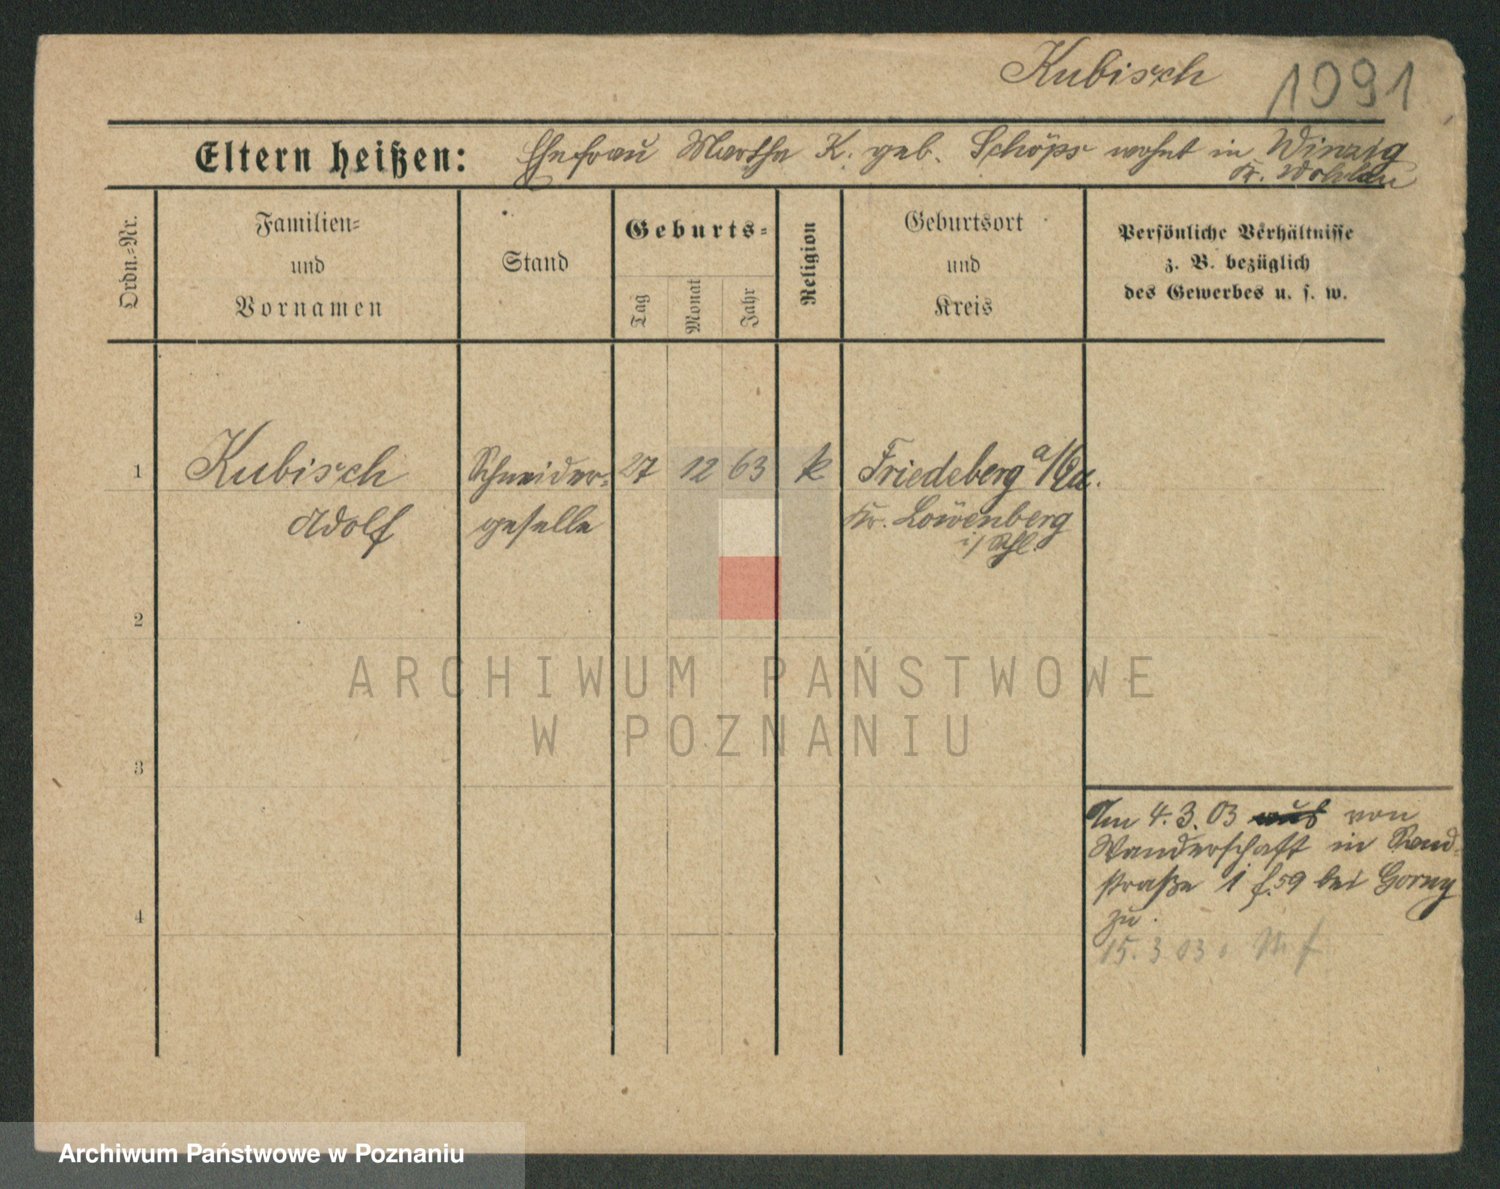 Kubisch 1091
Eltern heißen: Ehefrau Martha K. geb. Schöps wohnt in Winzig
Kr. Wohlau
Ordn.-Nr.
Familien-
und
Vornamen
Stand
Geburts-
Tag
Monat
Jahr
Religion
Geburtsort
und
Kreis
Persönliche Verhältnisse
z. B. bezüglich
des Gewerbes u. s. w.
1 Kubisch Schneider- 27 12 63 k Friedeberg a/Qu.
Adolf geselle Kr. Löwenberg
i/Schl.
2
3
4
Am 4.3.03 aus von
Wanderschaft in
straße 1 bei Gorny
zu.
15.3.03
ARCHIWUM PAŃSTWOWE
W POZNANIU
Archiwum Państwowe w Poznaniu